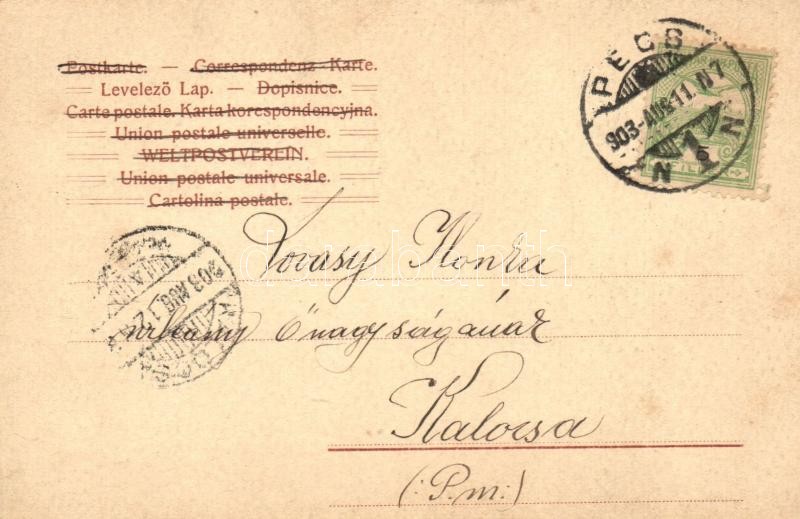 Postkarte. — Correspondenz-Karte.
Levelező Lap. — Dopisnice.
Carte postale. Karta korespondencyjna.
Union postale universelle.
WELTPOSTVEREIN.
Union postale universale.
Cartolina postale.
PÉCS
903-AUG-11. N7
N 1 N
903 AUG 12
Lovasy Ilonka
urleány Őnagyságának
Kalocsa
(: P. m :)